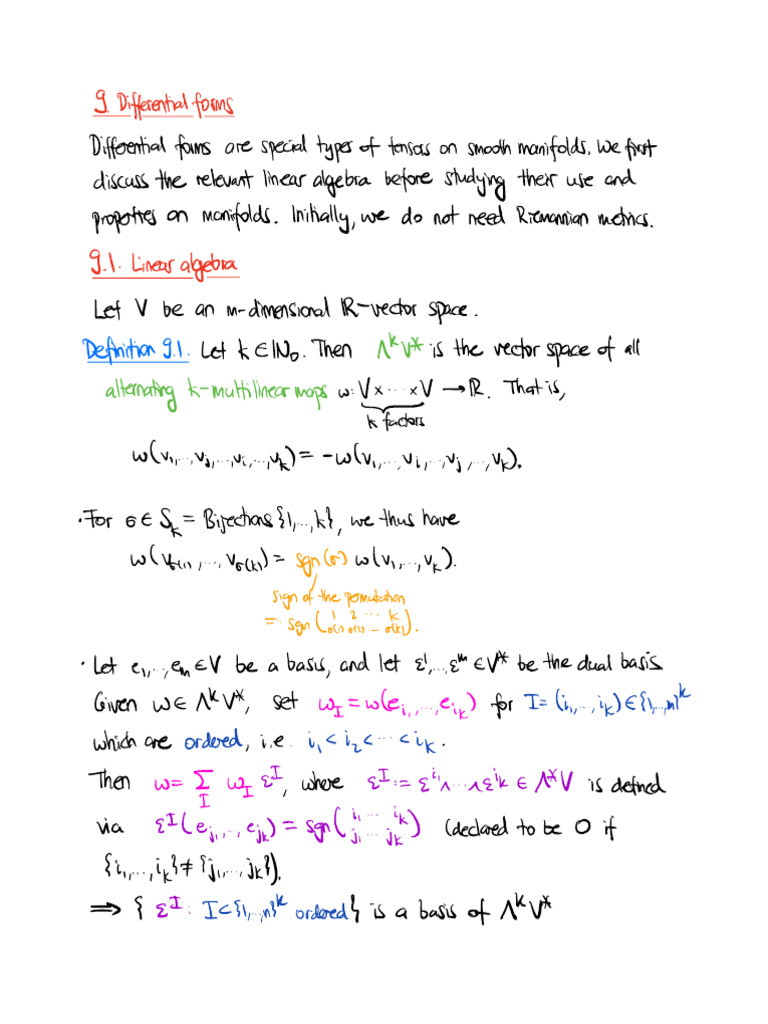 9. Differential forms
Differential forms are special types of tensors on smooth manifolds. We first
discuss the relevant linear algebra before studying their use and
properties on manifolds. Initially, we do not need Riemannian metrics.
9.1. Linear algebra
Let V be an m-dimensional ℝ-vector space.
Definition 9.1. Let k ∈ ℕ₀. Then ΛᵏV* is the vector space of all
alternating k-multilinear maps ω: V × ⋯ × V → ℝ. That is,
k factors
ω(v₁,…,vⱼ,…,vᵢ,…,vₖ) = -ω(v₁,…,vᵢ,…,vⱼ,…,vₖ).
• For σ ∈ Sₖ = Bijections {1,…,k}, we thus have
ω(v_σ(1),…,v_σ(k)) = sgn(σ) ω(v₁,…,vₖ).
sign of the permutation
= sgn (1 2 ⋯ k
σ(1) σ(2) ⋯ σ(k)).
• Let e₁,…,eₘ ∈ V be a basis, and let ε¹,…,εᵐ ∈ V* be the dual basis.
Given ω ∈ ΛᵏV*, set ω_I = ω(e_{i₁},…,e_{iₖ}) for I = (i₁,…,iₖ) ∈ {1,…,n}ᵏ
which are ordered, i.e. i₁ < i₂ < ⋯ < iₖ.
Then ω = Σ_I ω_I ε^I, where ε^I := ε^{i₁} ∧ ⋯ ∧ ε^{iₖ} ∈ Λ*V is defined
via ε^I(e_{j₁},…,e_{jₖ}) = sgn (i₁ ⋯ iₖ
j₁ ⋯ jₖ) (declared to be 0 if
{i₁,…,iₖ} ≠ {j₁,…,jₖ}).
⇒ { ε^I : I ⊂ {1,…,n}ᵏ ordered } is a basis of ΛᵏV*